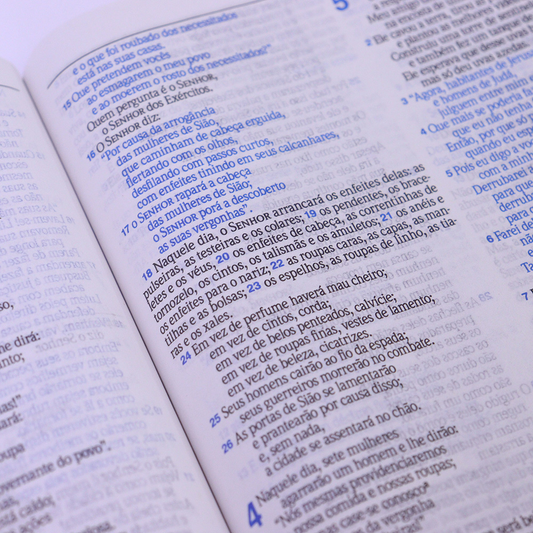 so,
ne dirá:
nto;
gas!"
ará:
oupa
overnante do povo".
uld caído;
ações
e o que foi roubado dos necessitados
está nas suas casas.
15 Que pretendem vocês
ao esmagarem o meu povo
e ao moerem o rosto dos necessitados?"
Quem pergunta é o SENHOR,
o SENHOR dos Exércitos.
O SENHOR diz:
16 "Por causa da arrogância
das mulheres de Sião,
que caminham de cabeça erguida,
flertando com os olhos,
desfilando com passos curtos,
com enfeites tinindo em seus calcanhares,
17 o SENHOR rapará a cabeça
das mulheres de Sião;
o SENHOR porá a descoberto
as suas vergonhas".
18 Naquele dia, o SENHOR arrancará os enfeites delas: as
pulseiras, as testeiras e os colares; 19 os pendentes, os brace-
letes e os véus, 20 os enfeites de cabeça, as correntinhas de
tornozelo, os cintos, os talismãs e os amuletos; 21 os anéis e
os enfeites para o nariz; 22 as roupas caras, as capas, as man-
tilhas e as bolsas; 23 os espelhos, as roupas de linho, as tia-
ras e os xales.
24 Em vez de perfume haverá mau cheiro;
em vez de cintos, corda;
em vez de belos penteados, calvície;
em vez de roupas finas, vestes de lamento;
em vez de beleza, cicatrizes.
25 Seus homens cairão ao fio da espada;
seus guerreiros morrerão no combate.
26 As portas de Sião se lamentarão
e prantearão por causa disso;
e, sem nada,
a cidade se assentará no chão.
4 Naquele dia, sete mulheres
agarrarão um homem e lhe dirão:
"Nós mesmas providenciaremos
nossa comida e nossas roupas;
case-se conosco
da vergonha
5
Meu amigo
na encosta de
2 Ele cavou a terra, tirou as
e plantou as melhores videiras
Construiu uma torre de
e também fez um tanque de
Ele esperava que desse uvas
mas só deu uvas
3 "Agora, habitantes de Jerus
e homens de Judá,
julguem entre mim e
4 Que mais se poderia fa
que eu não tenha
Então, por que só
quando eu esp
5 Pois eu digo a vo
com a minh
Derrubarei a
para que
derrubar
para q
6 Farei de
não
e
Ta
7